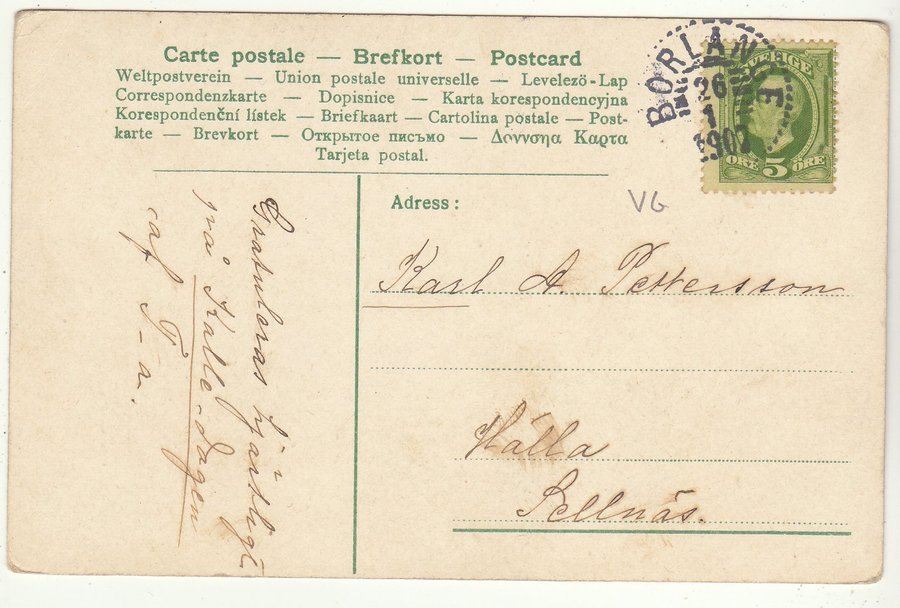 Carte postale — Brefkort — Postcard
Weltpostverein — Union postale universelle — Levelezö-Lap
Correspondenzkarte — Dopisnice — Karta korespondencyjna
Korespondenční lístek — Briefkaart — Cartolina postale — Post-
karte — Brevkort — Открытое письмо — Δογνσηα Καρτα
Tarjeta postal.
BORLÄNGE
26
1
1907
SVERIGE
ÖRE 5 ÖRE
VG
Adress:
Karl A. Pettersson
Hälla
Sellnäs.
Gratuleras hjärtligt
på Kalle-dagen
af T-a.